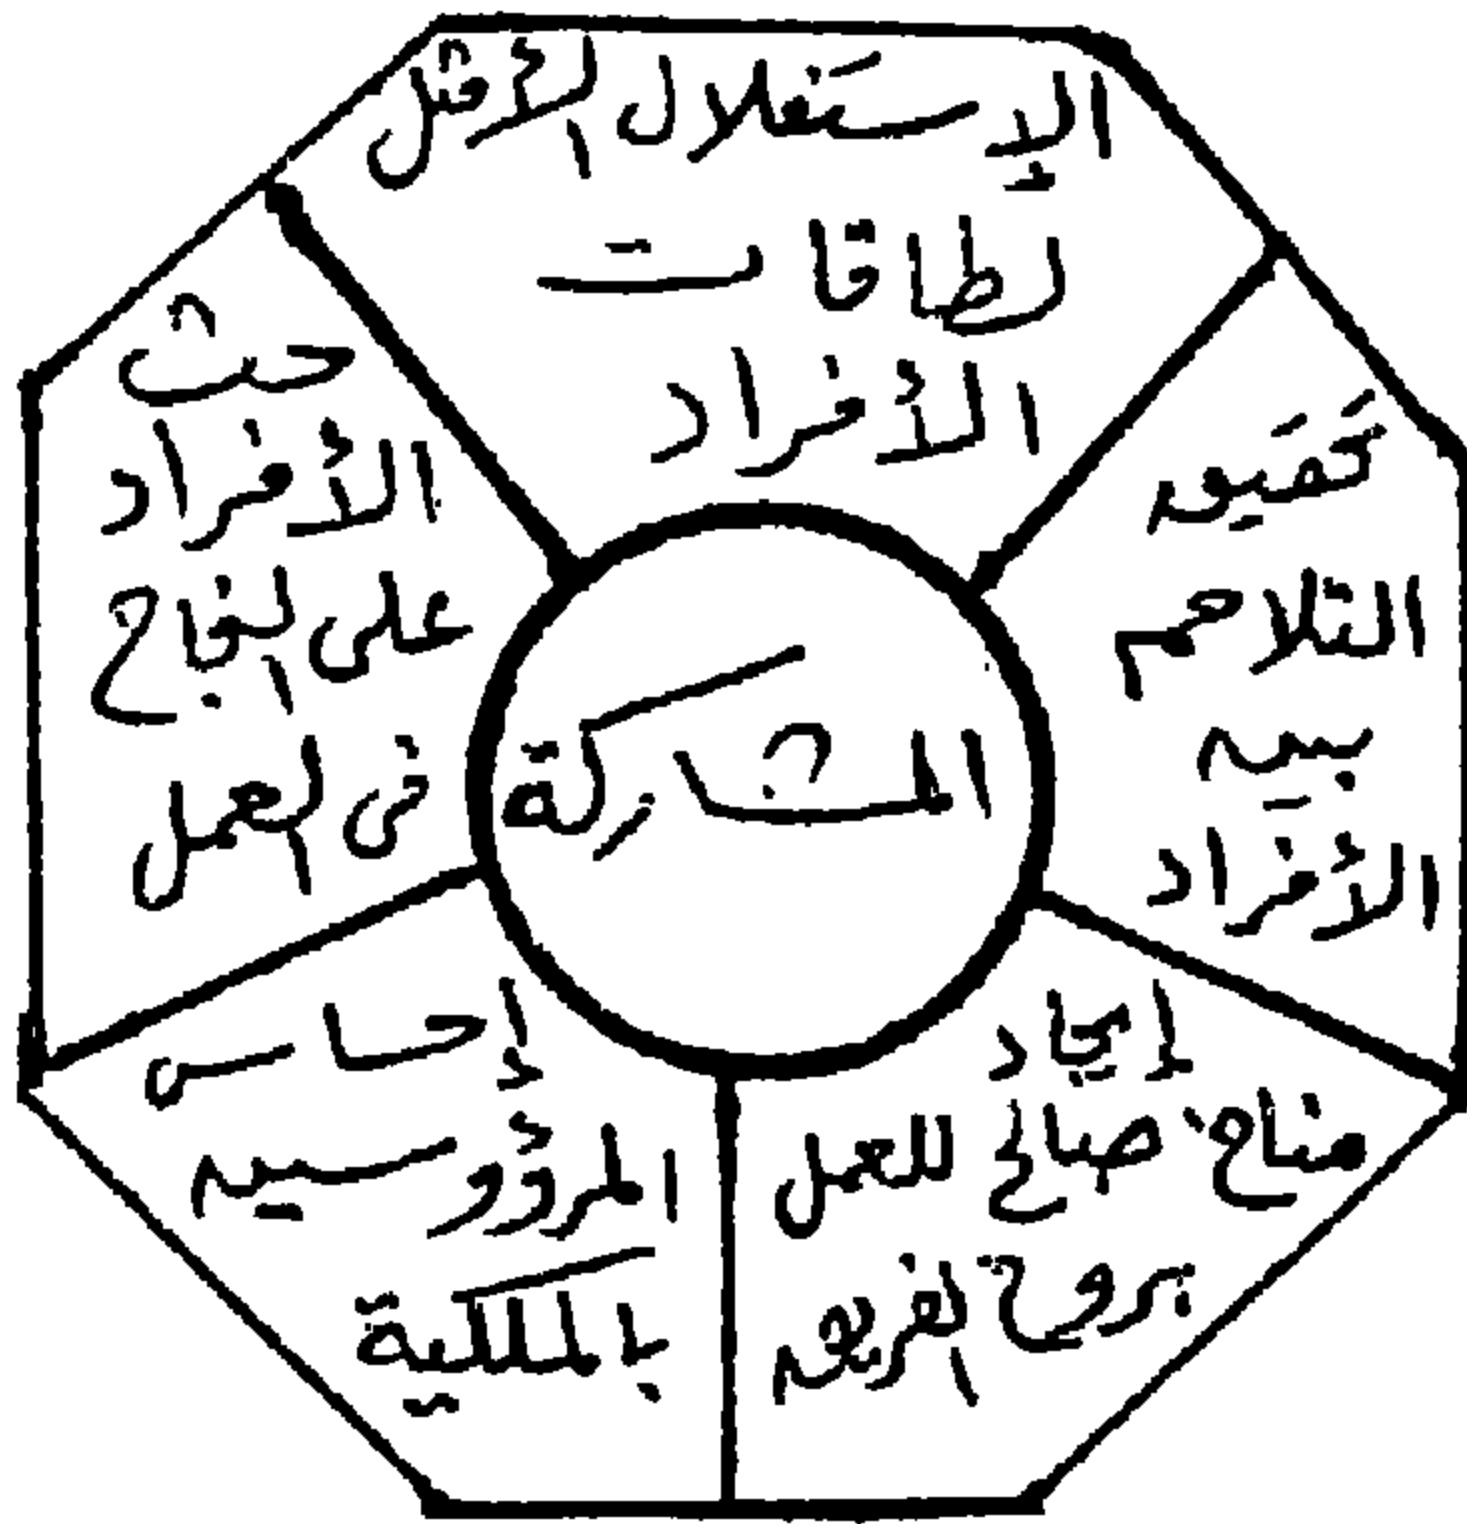 الإستغلال الأمثل
لطاقات
الأفراد
تحقيق
التلاحم
بين
الأفراد
إيجاد
مناخ صالح للعمل
بروح الفريق
إحساس
المرؤوسين
بالملكية
حث
الأفراد
على النجاح
في العمل
المشاركة